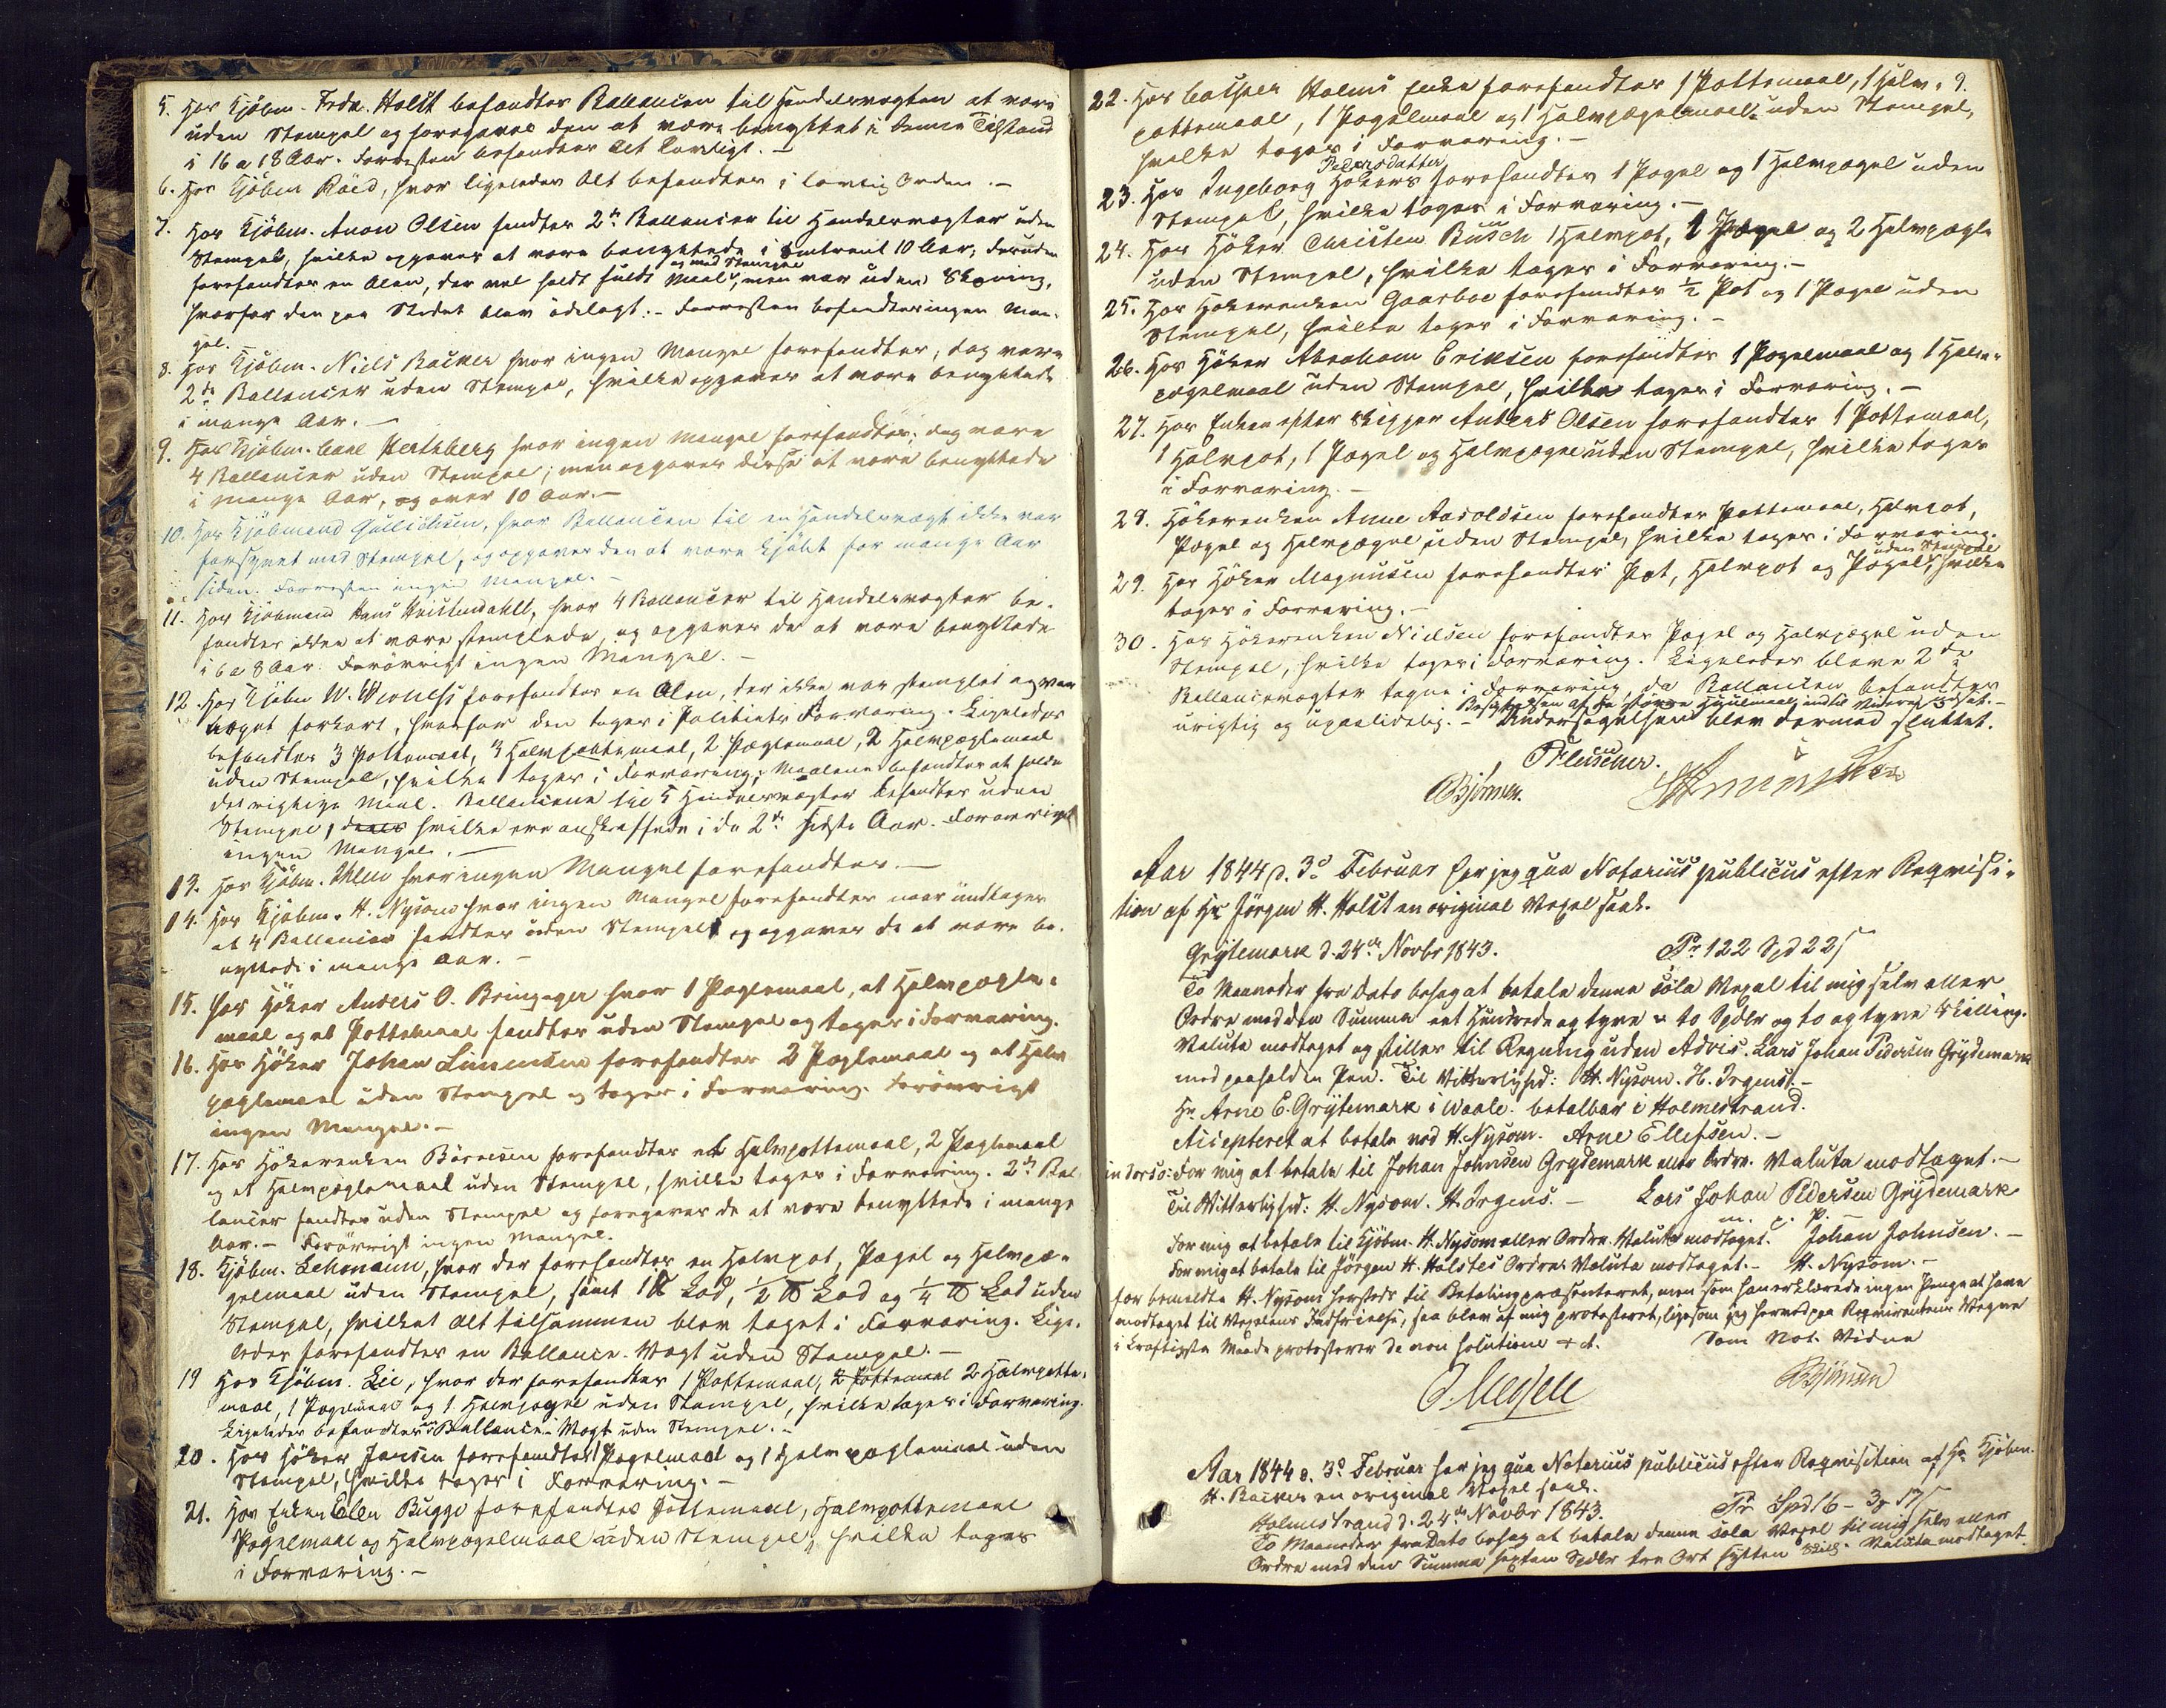 5. Hos Kjøbm. Fredr. Holst befandtes Ballancen til Handelsvægten at være
uden Stempel og foregaves den at være benyttet i denne Tilstand
i 16 a 18 Aar. Forresten befandtes Alt lovligt. –
6. Hos Kjøbm Röed, hvor ligeledes Alt befandtes i lovlig Orden. –
7. Hos Kjøbm. Anon Olsen fandtes 2de Ballancer til Handelsvægter uden
Stempel, hvilke opgaves at være benyttede i omtrent 10 Aar; desuden
forefandtes en Alen, der vel holdt fuldt Maal og med Stempel, men var uden Skoning,
hvorfor den paa Stedet blev ödelagt. – Forresten befandtes ingen Man-
gel. –
8. Hos Kjøbm. Niels Backer hvor ingen Mangel forefandtes, dog vare
2de Ballancer uden Stempel, hvilke opgaves at være benyttede
i mange Aar. –
9. Hos Kjøbm. Carl Hertzberg hvor ingen Mangel forefandtes; dog vare
4 Ballancer uden Stempel; men opgaves disse at være benyttede
i mange Aar, og over 10 Aar. –
10. Hos Kjøbmand Gullichsen, hvor Ballancen til en Handelsvægt ikke var
forsynet med Stempel, og opgaves den at være kjøbt for mange Aar
siden. Forresten ingen Mangel. –
11. Hos Kjøbmand Hans , hvor 4 Ballancer til Handelsvægter be-
fandtes ikke at være stemplede, og opgaves de at være benyttede
i 6 a 8 Aar. Forövrigt ingen Mangel. –
12. Hos Kjøbm W. forefandtes en Alen, der ikke var stemplet og var
noget forkort, hvorfor den toges i Politiets Forvaring. Ligeledes
befandtes 3 Pottemaal, 3 Halvpottemaal, 2 Pæglemaal, 2 Halvpæglemaal
uden Stempel, hvilke toges i Forvaring; Maalene befandtes at holde
det rigtige Maal. Ballancerne til 5 Handelsvægter befandtes uden
Stempel, hvilke ere anskaffede i de 2de sidste Aar. Forøvrigt
ingen Mangel. –
13. Hos Kjøbm. Uhlen hvor ingen Mangel forefandtes. –
14. Hos Kjøbm. H. Nysom hvor ingen Mangel forefandtes naar undtages
at 4 Ballancer fandtes uden Stempel og opgaves de at være be-
nyttede i mange Aar. –
15. Hos Höker Anders O. Bringager hvor 1 Pæglemaal, et Halvpægle-
maal og et Pottemaal fandtes uden Stempel og toges i Forvaring.
16. Hos Höker Johan forefandtes 2 Pæglemaal og et Halv
pæglemaal uden Stempel og toges i Forvaring. Forövrigt
ingen Mangel. –
17. Hos Hökerenken Börresen forefandtes et Halvpottemaal, 2 Pæglemaal
og et Halvpæglemaal uden Stempel, hvilke toges i Forvaring. 2de Bal-
lancer fandtes uden Stempel og foregaves de at være benyttede i mange
Aar. – Forövrigt ingen Mangel.
18. Kjøbm. Lehmann, hvor der forefandtes en Halvpot, Pægel og Halvpæ-
gelmaal uden Stempel, samt 1 ℔ Lod, 1/2 ℔ Lod og 1/4 ℔ Lod uden
Stempel, hvilket Alt tilsammen blev taget i Forvaring. Lige-
ledes forefandtes en Ballance-Vægt uden Stempel. –
19 Hos Kjøbm. Lie, hvor der forefandtes 1 Pottemaal, 2 Pottemaal 2 Halvpotte-
maal, 1 Pægelmaal og 1 Halvpægel uden Stempel, hvilke toges i Forvaring.
Ligeledes befandtes Ballance-Vægt uden Stempel. –
20. Hos Höker Jansen forefandtes 1 Pægelmaal og 1 Halvpæglemaal uden
Stempel, hvilke toges i Forvaring. –
21. Hos Enken Ellen Bugge forefandtes Pottemaal, Halvpottemaal
Pægelmaal og Halvpægelmaal uden Stempel, hvilke toges
i Forvaring. –
9.
22. Hos Casper Holms Enke forefandtes 1 Pottemaal, 1 Halv-
pottemaal, 1 Pægelmaal og 1 Halvpægelmaal uden Stempel,
hvilke toges i Forvaring. –
Pedersdatter
23. Hos Ingeborg Hökers forefandtes 1 Pægel og 1 Halvpægel uden
Stempel, hvilke toges i Forvaring. –
24. Hos Höker Christen Busch 1 Halvpot, 1 Pægel og 2 Halvpægle
uden Stempel, hvilke toges i Forvaring. –
25. Hos Hökerenken Gaarboe forefandtes 1/2 Pot og 1 Pægel uden
Stempel, hvilke toges i Forvaring. –
26. Hos Höker Abraham Eriksen forefandtes 1 Pægelmaal og 1 Halv-
pægelmaal uden Stempel, hvilke toges i Forvaring. –
27. Hos Enken efter Skipper Anders Olsen forefandtes 1 Pottemaal,
1 Halvpot, 1 Pægel og Halvpægel uden Stempel, hvilke toges
i Forvaring. –
28. Hökerenken Anne Aaroldsen forefandtes Pottemaal, Halvpot,
Pægel og Halvpægel uden Stempel, hvilke toges i Forvaring.
29. Hos Höker Magnussen forefandtes Pot, Halvpot og Pægel, uden Stempel hvilke
toges i Forvaring. –
30. Hos Hökerenken Nielsen forefandtes Pægel og Halvpægel uden
Stempel, hvilke toges i Forvaring. Ligeledes bleve 2de
Ballancevægter tagne i Forvaring, da Ballancen befandtes
urigtig og upaalidelig. – Besigtelsen af de större Hulmaal indtil Videre udsat. –
Undersögelsen blev dermed sluttet.
Björnsen.
Aar 1844 d. 3d Februar har jeg qua Notarius publicus efter Reqvisi-
tion af Hr Jörgen H. Holst en original Vexel saal.
Grytemark d. 24de Novbr 1843. Pr 122 Spd 22 s
To Maaneder fra Dato behag at betale denne sola Vexel til mig selv eller
Ordre med den Summa eet Hundrede og tyve – to Spdlr og to og tyve Skilling.
Valuta modtaget og stilles til Regning uden Advis. Lars Johan Pedersen Grydemark
med paaholden Pen. Til Vitterlighed: H. Nysom. H. Irgens. –
Hr Arne E. Grytemark i Waale. betalbar i Holmestrand.
Accepteret at betale ved H. Nysom. Arne Ellefsen. –
in dorso: For mig at betale til Johan Johnsen Grydemark eller Ordre. Valuta modtaget. –
Til Vitterlighed: H. Nysom. H. Irgens. – Lars Johan Pedersen Grydemark
m. p. P.
For mig at betale til Kjöbm. H. Nysom eller Ordre. Valuta modtaget. Johan Johnsen. –
For mig at betale til Jörgen H. Holstes Ordre. Valuta modtaget. – H. Nysom. –
for bemeldte H. Nysom hersteds til Betaling præsenteret, men som han erklærede ingen Penge at have
modtaget til Vexelens Indfrielse, saa blev af mig protesteret, ligesom jeg herved paa Reqvirentens Vegne
i kraftigste Maade protesterer de non solutione &ct. Som Not. Vidne
Björnsen
Aar 1844 d. 3d Februar har jeg qua Notarius publicus efter Reqvisition af Hr Kjøbm.
H. Backer en original Vexel saal.
Holmestrand d. 24de Novbr 1843. Pr Spd 16 – 3 17 s
To Maaneder fra Dato behag at betale denne sola Vexel til mig selv eller
Ordre med den Summa sexten Spdlr tre Ort sytten Skill. Valuta modtaget